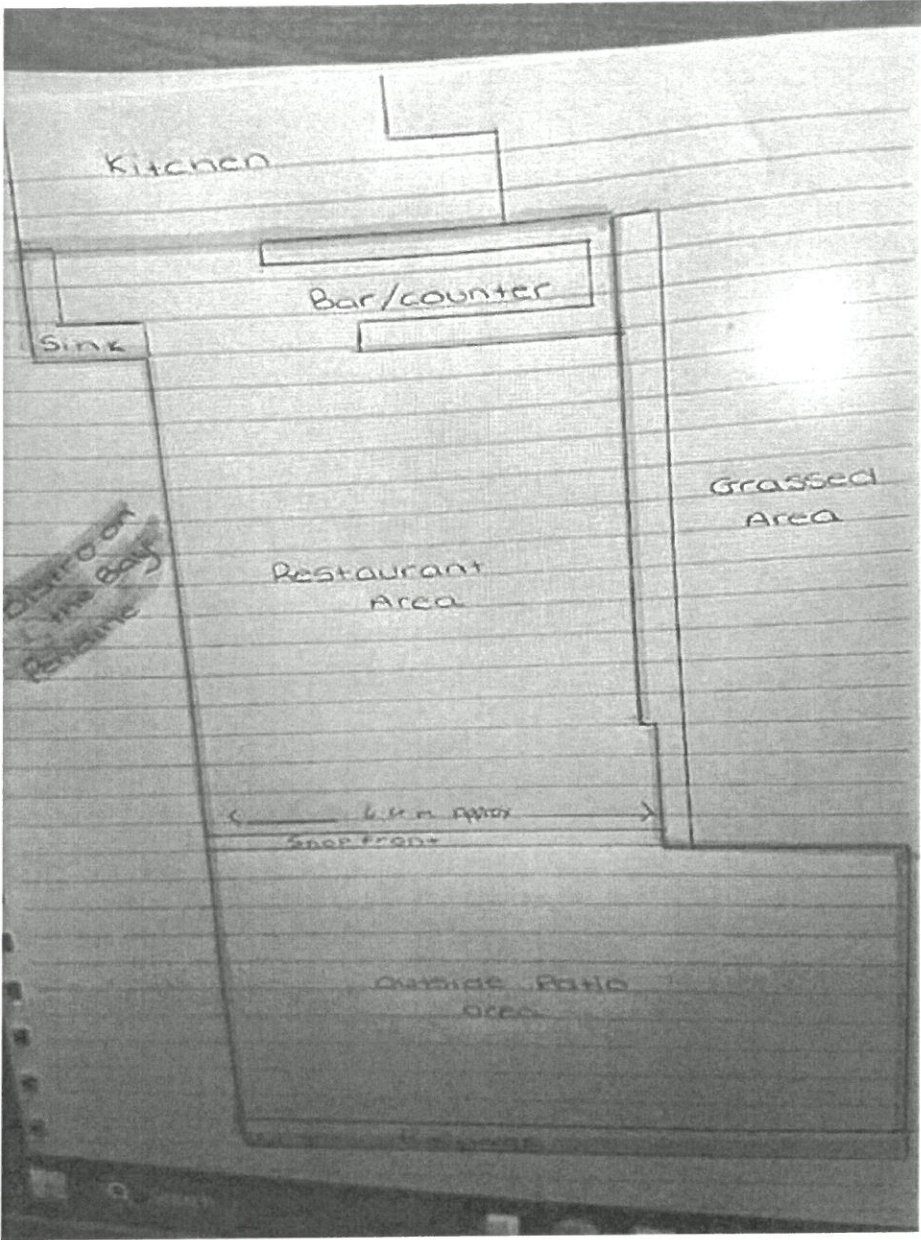 Kitchen
Bar/counter
Sink
Grassed
Area
Bistro on
the Bay
Pendine
Restaurant
Area
Approx
Shop front
Outside Patio
area